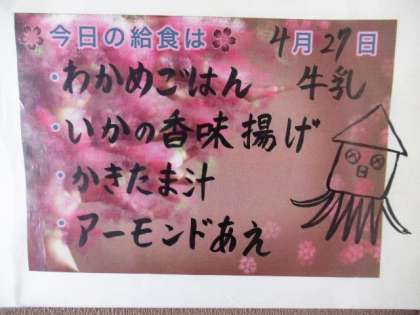 今日の給食は 4月27日
・わかめごはん 牛乳
・いかの香味揚げ
・かきたま汁
・アーモンドあえ